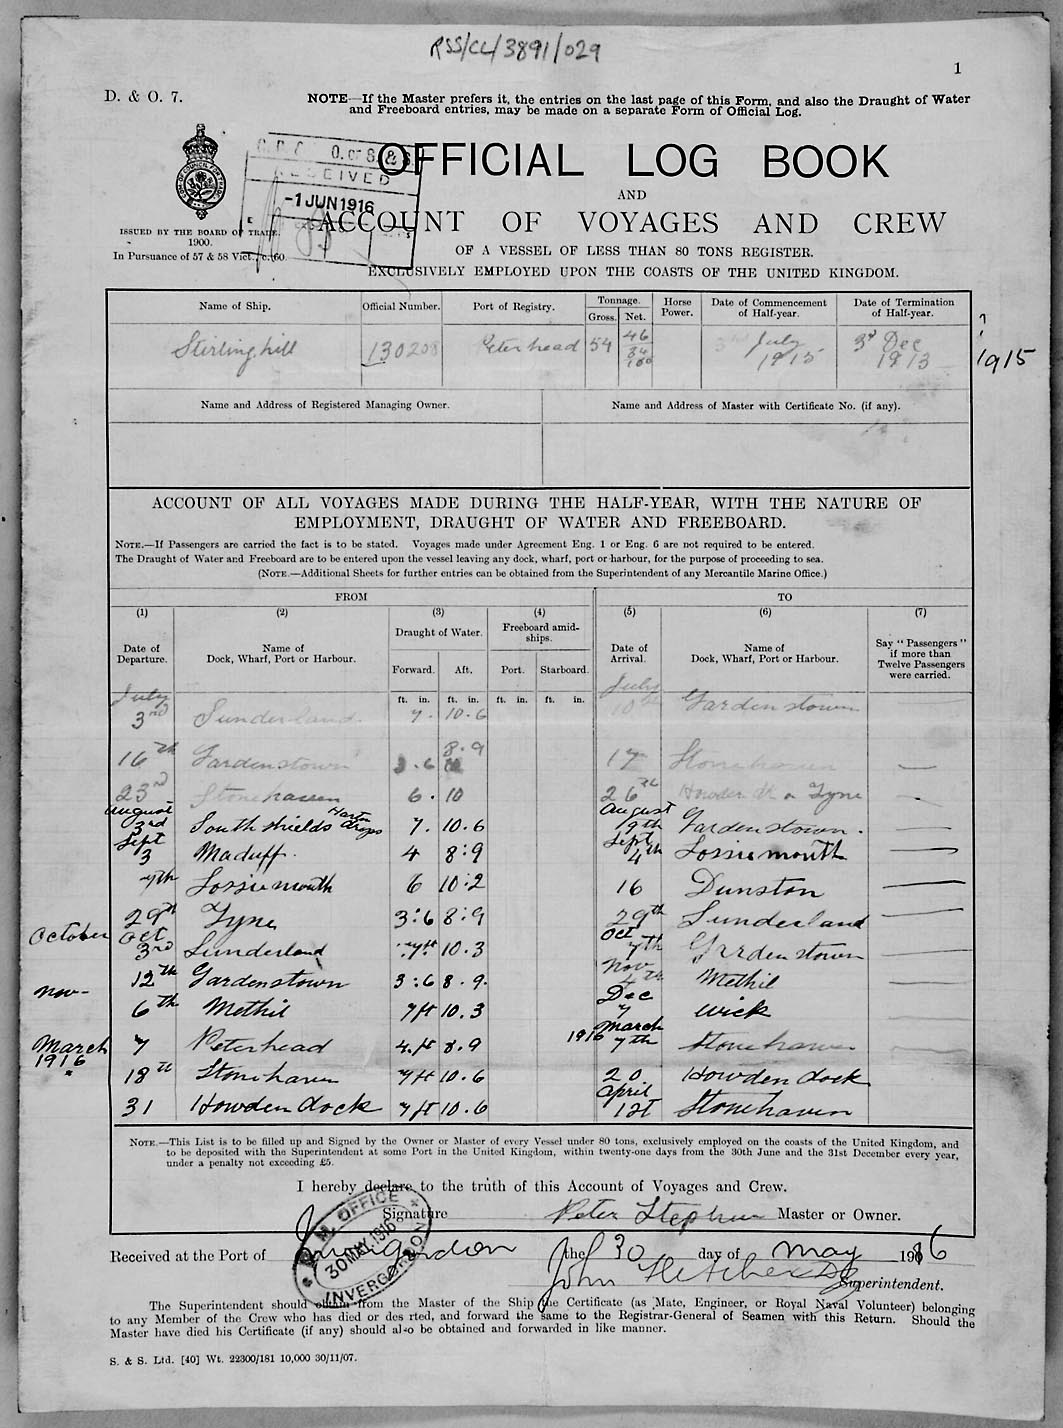 RSS/CL/3891/029
1
D. & O. 7.
NOTE—If the Master prefers it, the entries on the last page of this Form, and also the Draught of Water
and Freeboard entries, may be made on a separate Form of Official Log.
OFFICIAL LOG BOOK
RECEIVED
-1 JUN 1916
AND
ACCOUNT OF VOYAGES AND CREW
ISSUED BY THE BOARD OF TRADE.
1900.
In Pursuance of 57 & 58 Vict., c. 60.
OF A VESSEL OF LESS THAN 80 TONS REGISTER.
EXCLUSIVELY EMPLOYED UPON THE COASTS OF THE UNITED KINGDOM.
Name of Ship. Official Number. Port of Registry. Tonnage. Gross. Net. Horse Power. Date of Commencement of Half-year. Date of Termination of Half-year.
Stirling hill 130208 Peterhead 54 46 34/100 3rd July 1915 3rd Dec 1913
? 1915
Name and Address of Registered Managing Owner. Name and Address of Master with Certificate No. (if any).
ACCOUNT OF ALL VOYAGES MADE DURING THE HALF-YEAR, WITH THE NATURE OF
EMPLOYMENT, DRAUGHT OF WATER AND FREEBOARD.
NOTE.—If Passengers are carried the fact is to be stated. Voyages made under Agreement Eng. 1 or Eng. 6 are not required to be entered.
The Draught of Water and Freeboard are to be entered upon the vessel leaving any dock, wharf, port or harbour, for the purpose of proceeding to sea.
(NOTE.—Additional Sheets for further entries can be obtained from the Superintendent of any Mercantile Marine Office.)
FROM TO
(1) (2) (3) (4) (5) (6) (7)
Date of Departure. Name of Dock, Wharf, Port or Harbour. Draught of Water. Forward. Aft. Freeboard amidships. Port. Starboard. Date of Arrival. Name of Dock, Wharf, Port or Harbour. Say "Passengers" if more than Twelve Passengers were carried.
ft. in. ft. in. ft. in. ft. in.
July 3rd Sunderland 7. 10.6 July 10th Gardenstown —
16th Gardenstown 3.6 8.9 17 Stonehaven —
23rd Stonehaven 6. 10 26th Howden Dk on Tyne
August 3rd South shields Harton drops 7. 10.6 August 19th Gardenstown. —
Sept 3 Maduff. 4 8:9 Sept 4th Lossiemouth —
7th Lossiemouth 6 10:2 16 Dunston —
29th Tyne 3:6 8:9 29th Sunderland —
October Oct 3rd Sunderland 7ft 10.3 Oct 7th Gardenstown —
12th Gardenstown 3:6 8.9. Nov 4th Methil —
Nov- 6th Methil 7ft 10.3 Dec 7 Wick —
March 1916 7 Peterhead 4.ft 8.9 1916 March 7th Stonehaven —
18th Stonehaven 7ft 10.6 20 Howden dock
31 Howden dock 7ft 10.6 April 1st Stonehaven
NOTE.—This List is to be filled up and Signed by the Owner or Master of every Vessel under 80 tons, exclusively employed on the coasts of the United Kingdom, and
to be deposited with the Superintendent at some Port in the United Kingdom, within twenty-one days from the 30th June and the 31st December every year,
under a penalty not exceeding £5.
I hereby declare to the truth of this Account of Voyages and Crew.
Signature Peter Stephen Master or Owner.
M. M. OFFICE
30 MAY 1916
INVERGORDON
Received at the Port of Invergordon the 30 day of May 1916
John Fletcher Superintendent.
The Superintendent should obtain from the Master of the Ship the Certificate (as Mate, Engineer, or Royal Naval Volunteer) belonging
to any Member of the Crew who has died or des rted, and forward the same to the Registrar-General of Seamen with this Return. Should the
Master have died his Certificate (if any) should also be obtained and forwarded in like manner.
S. & S. Ltd. [40] Wt. 22300/181 10,000 30/11/07.